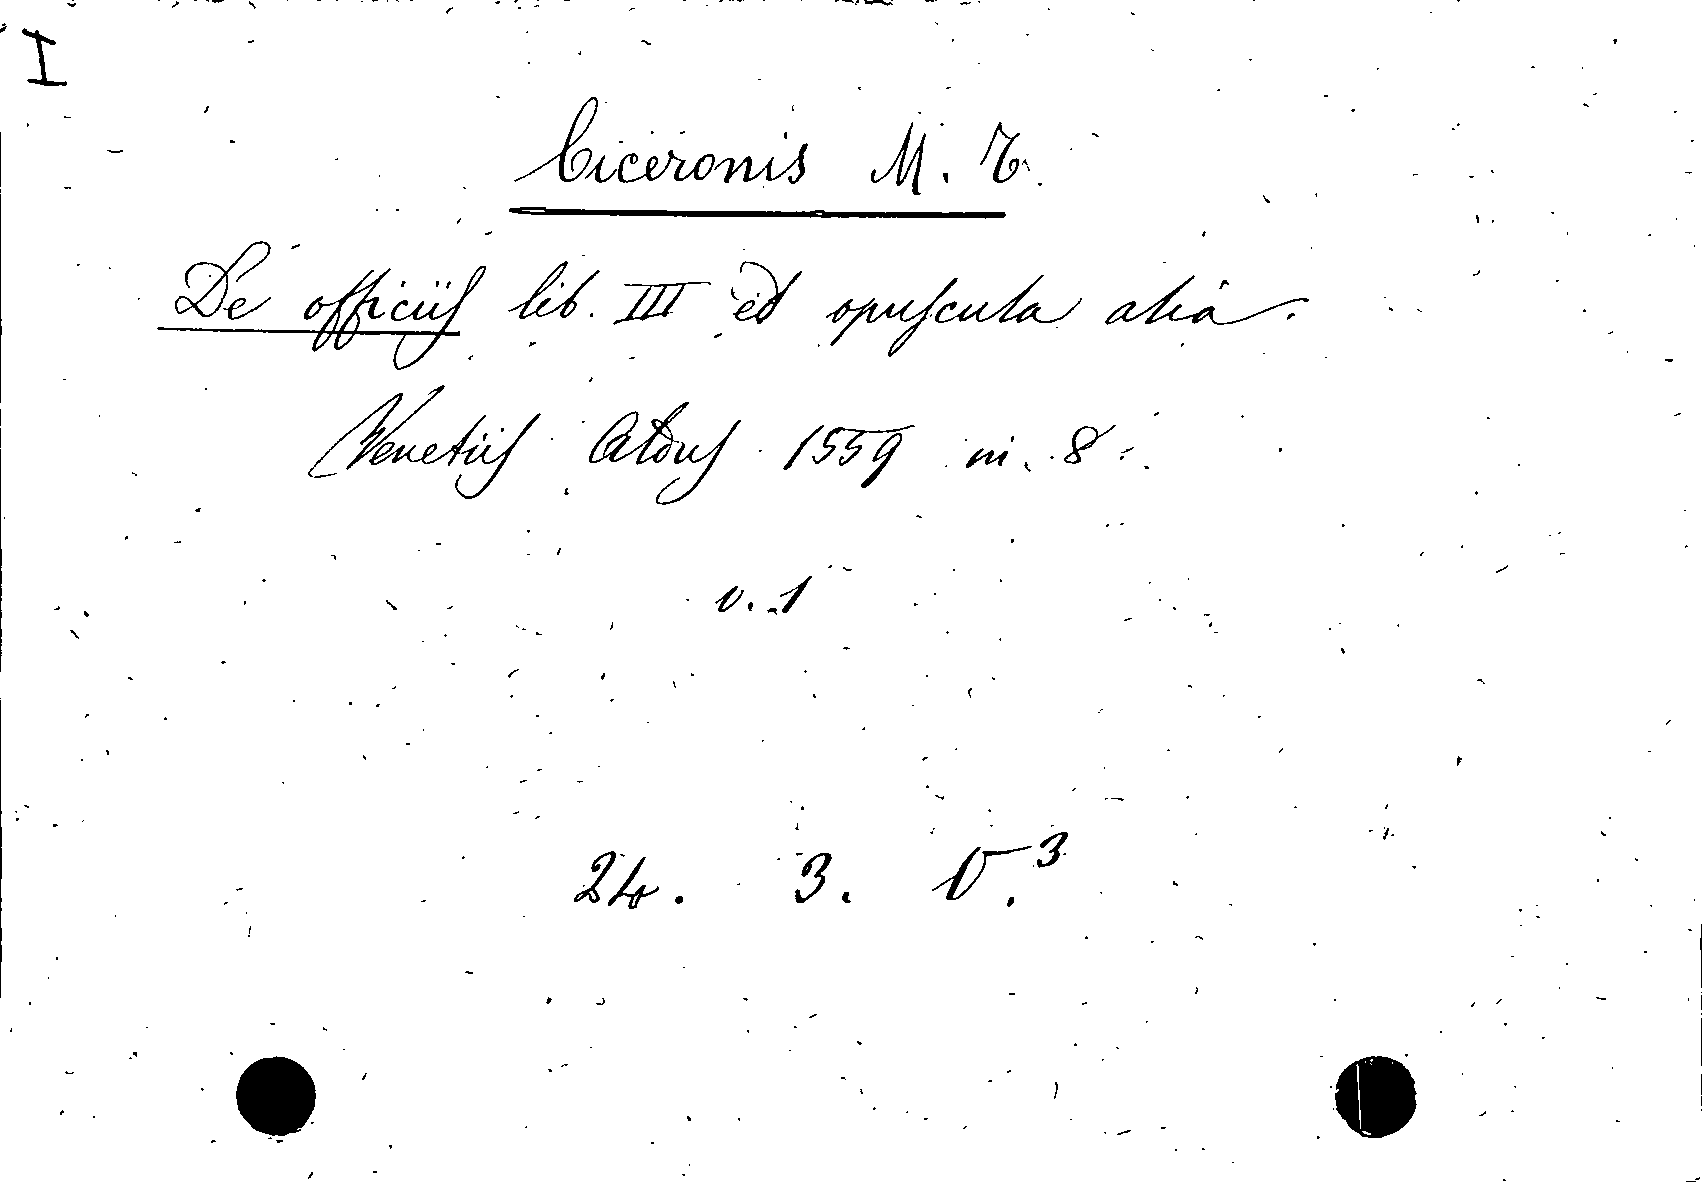 I
Ciceronis M. T.
De officiis lib. III et opuscula alia.
Venetiis Aldus 1559 in. 8.
v. 1
24. 3. V.3